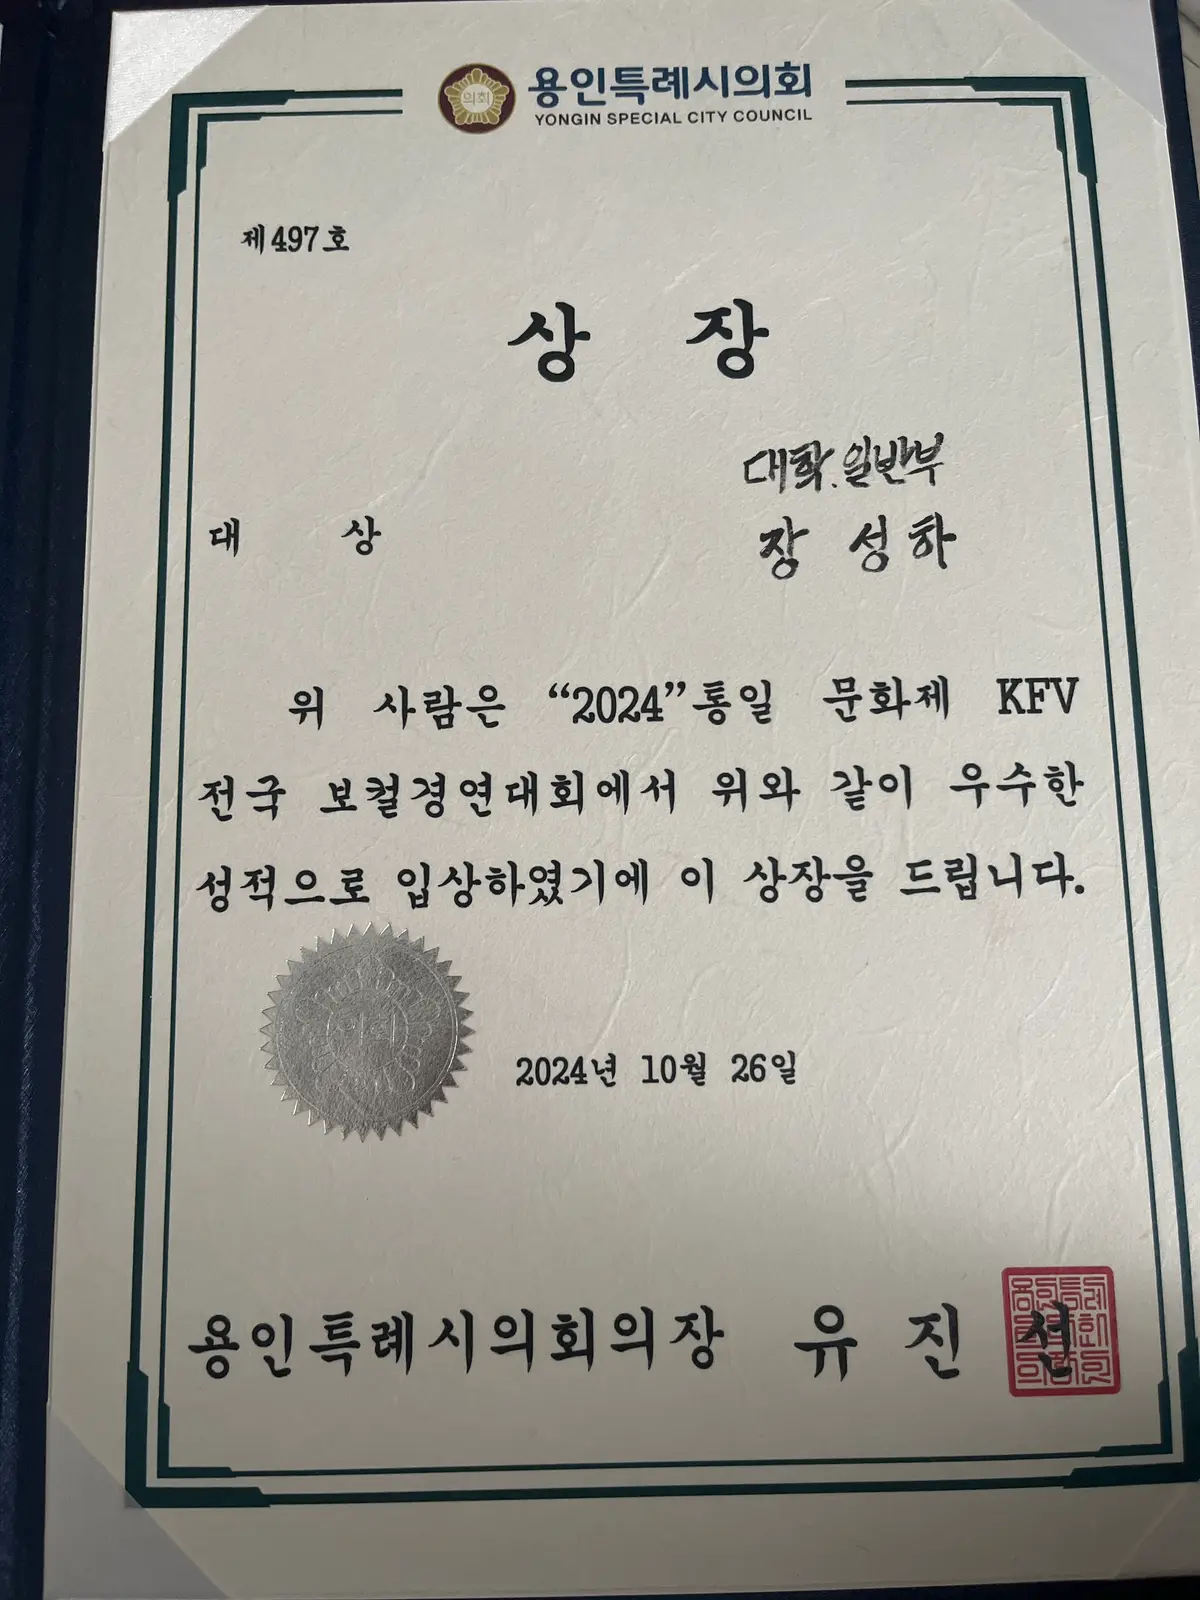 의회
용인특례시의회
YONGIN SPECIAL CITY COUNCIL
제497호
상 장
대학.일반부
대 상 장 성하
위 사람은 “2024”통일 문화제 KFV
전국 보컬경연대회에서 위와 같이 우수한
성적으로 입상하였기에 이 상장을 드립니다.
2024년 10월 26일
용인특례시의회의장 유 진 선